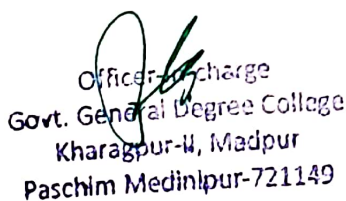 Officer-in-charge
Govt. General Degree College
Kharagpur-II, Madpur
Paschim Medinipur-721149